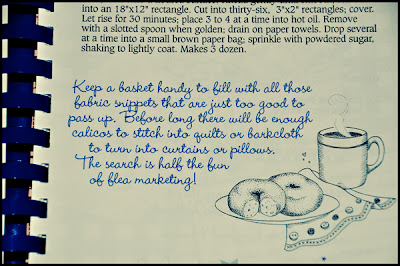 into an 18"x12" rectangle. Cut into thirty-six, 3"x2" rectangles; cover.
Let rise for 30 minutes; place 3 to 4 at a time into hot oil. Remove
with a slotted spoon when golden; drain on paper towels. Drop several
at a time into a small brown paper bag; sprinkle with powdered sugar,
shaking to lightly coat. Makes 3 dozen.
Keep a basket handy to fill with all those
fabric snippets that are just too good to
pass up. Before long there will be enough
calicos to stitch into quilts or barkcloth
to turn into curtains or pillows.
The search is half the fun
of flea marketing!